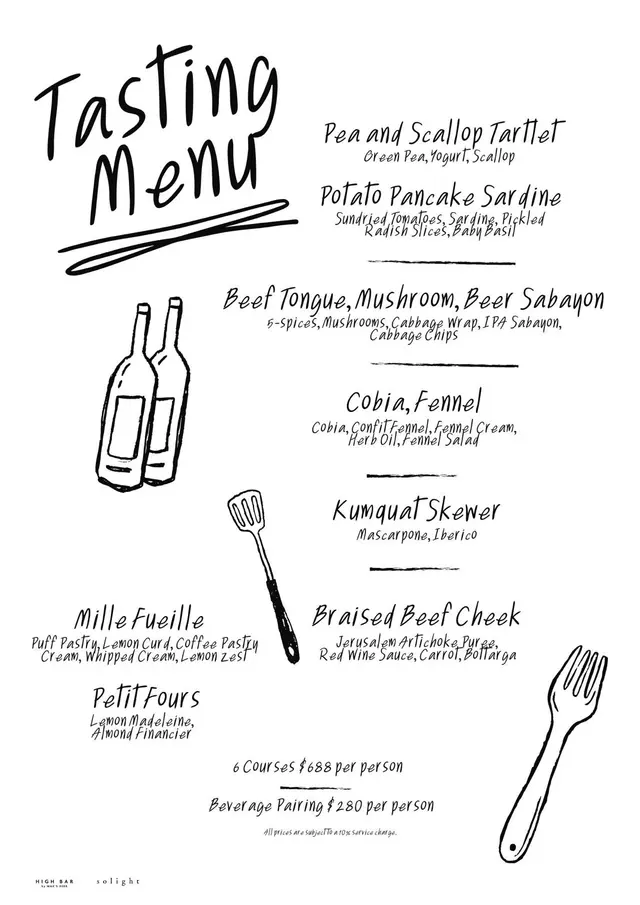 Tasting
Menu
Pea and Scallop Tartlet
Green Pea, Yogurt, Scallop
Potato Pancake Sardine
Sundried Tomatoes, Sardine, Pickled
Radish Slices, Baby Basil
Beef Tongue, Mushroom, Beer Sabayon
5-spices, Mushrooms, Cabbage Wrap, IPA Sabayon,
Cabbage Chips
Cobia, Fennel
Cobia, Confit Fennel, Fennel Cream,
Herb Oil, Fennel Salad
Kumquat Skewer
Mascarpone, Iberico
Braised Beef Cheek
Jerusalem Artichoke Puree,
Red Wine Sauce, Carrot, Bottarga
Mille Fueille
Puff Pastry, Lemon Curd, Coffee Pastry
Cream, Whipped Cream, Lemon zest
Petit Fours
Lemon Madeleine,
Almond Financier
6 Courses $688 per person
Beverage Pairing $280 per person
All prices are subject to a 10% service charge.
HIGH BAR
solight